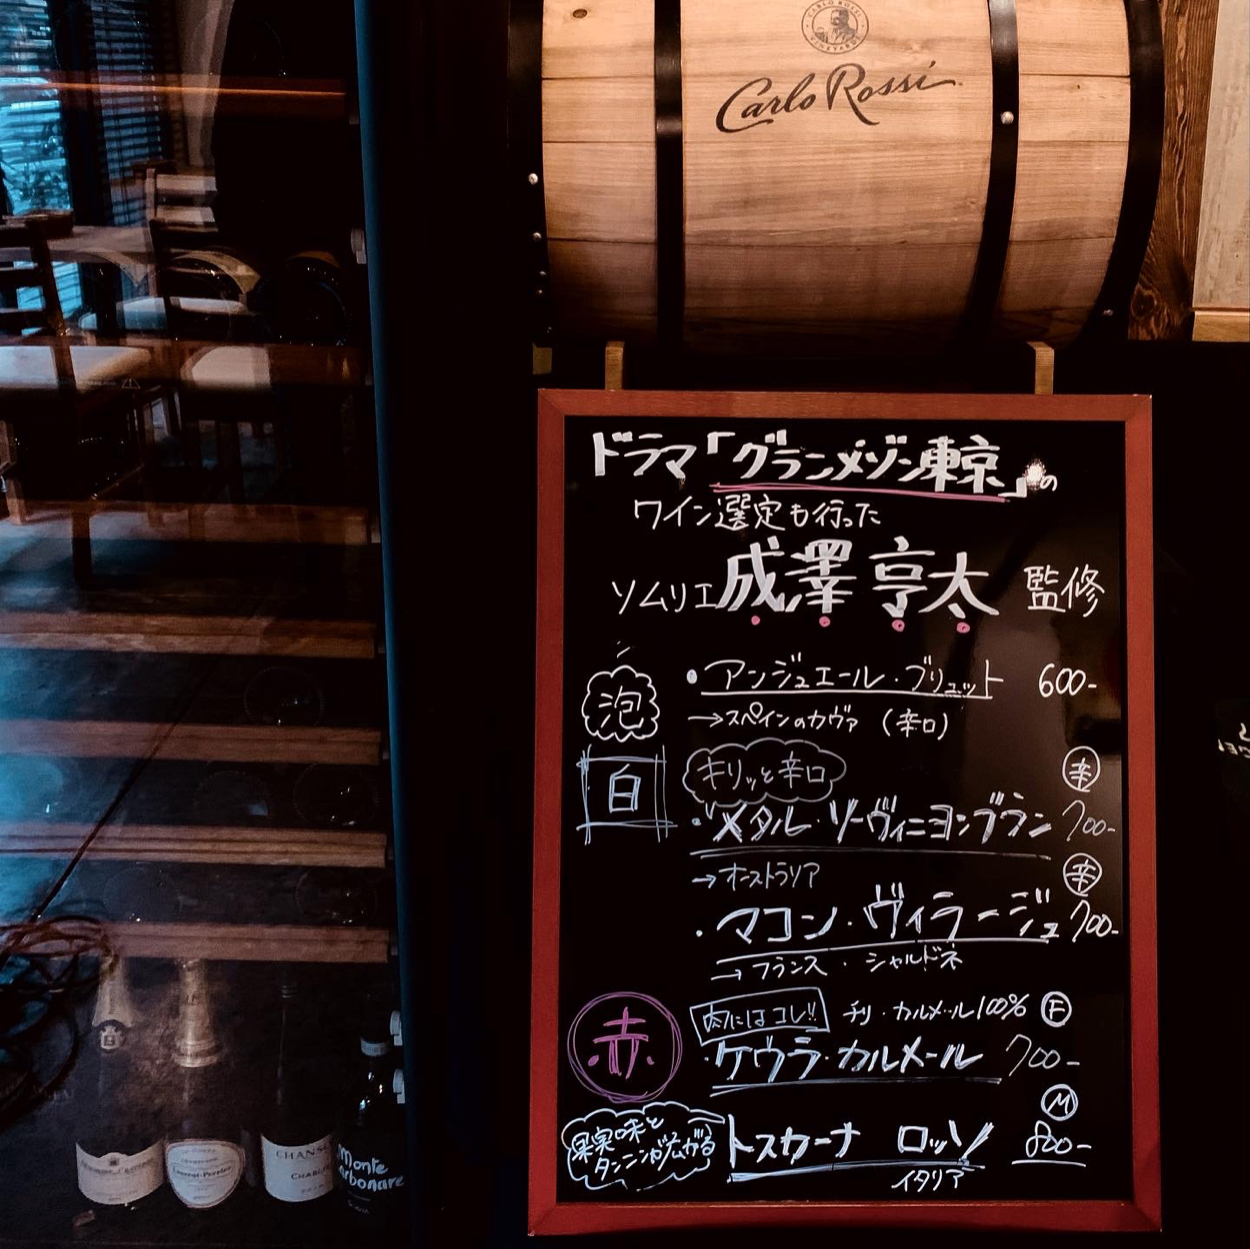 CARLO ROSSI
VINEYARDS
Carlo Rossi
ドラマ「グランメゾン東京」の
ワイン選定も行った
ソムリエ成澤亨太 監修
泡
・アンジュエール・ブリュット 600-
→スペインのカヴァ (辛口)
白
キリッと辛口
辛
・メタル・ソーヴィニヨンブラン 700-
→オーストラリア
辛
・マコン・ヴィラージュ 700-
→フランス・シャルドネ
赤
肉にはコレ!! チリ・カルメール100% F
・ケウラ・カルメール 700-
M
果実味と
タンニンが広がる
トスカーナ ロッソ 800-
イタリア
CHANSON
CHABLIS
Laurent-Perrier
Monte